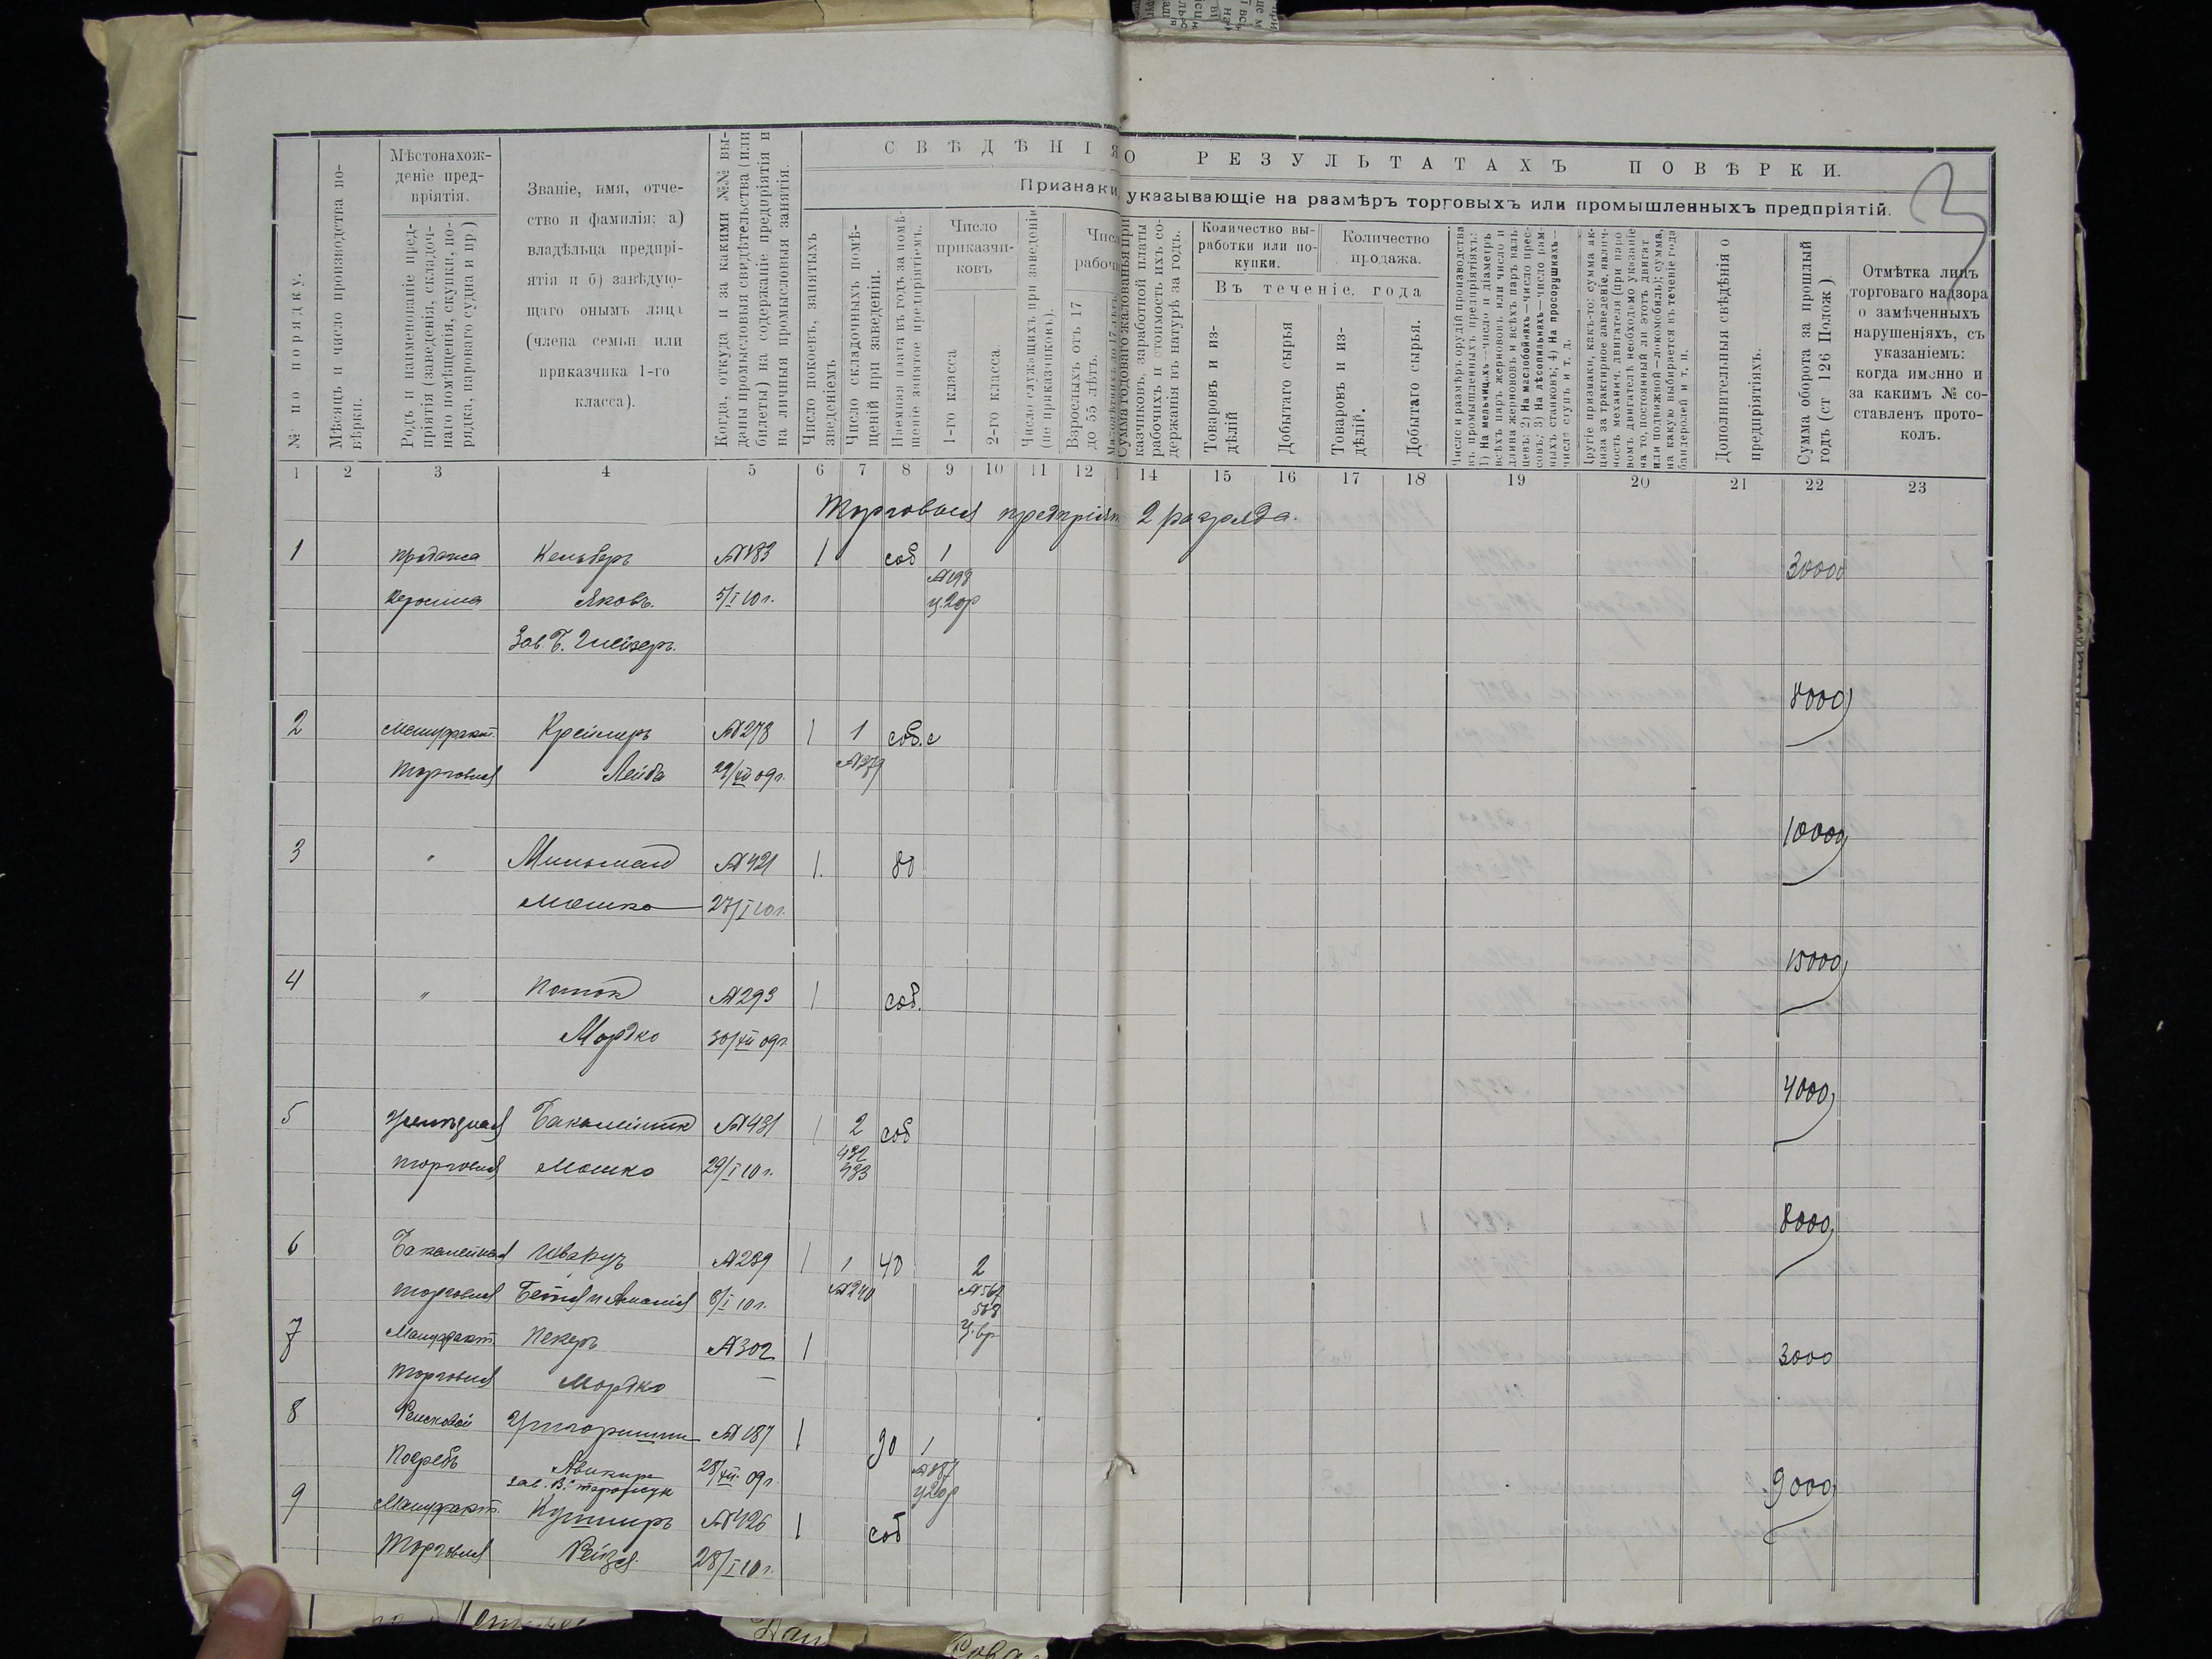 СВѢДѢНІЯ О РЕЗУЛЬТАТАХЪ ПОВѢРКИ.
3
Признаки, указывающіе на размѣръ торговыхъ или промышленныхъ предпріятій.
№ по порядку.
Мѣсяцъ и число производства повѣрки.
Мѣстонахож-
деніе пред-
пріятія.
Родъ и наименованіе пред-
пріятія (заведенія, складоч-
наго помѣщенія, скупки, по-
рядка, пароваго судна и пр.)
Званіе, имя, отче-
ство и фамилія: а)
владѣльца предпрі-
ятія и б) завѣдую-
щаго онымъ лица
(члена семьи или
приказчика 1-го
класса).
Когда, откуда и за какими №№ вы-
даны промысловыя свидѣтельства (или
билеты) на содержаніе предпріятія и
на личныя промысловыя занятія.
Число покоевъ, занятыхъ
зведеніемъ
Число складочныхъ помѣ-
щеній при заведеніи.
Наемная плата въ годъ за помѣ-
щеніе занятое предпріятіемъ.
Число
приказчи-
ковъ
1-го класса
2-го класса.
Число служащихъ при заведеніи
(не приказчиковъ).
Взрослыхъ отъ 17
до 55 лѣтъ.
Сумма годоваго жалованья при-
казчиковъ, заработной платы
рабочихъ и стоимость ихъ со-
держанія въ натурѣ за годъ.
Количество вы-
работки или по-
купки.
Количество
продажа.
Въ теченіе года
Товаровъ и из-
дѣлій
Добытаго сырья
Товаровъ и из-
дѣлій.
Добытаго сырья.
Число и размѣръ орудій производства
въ промышленныхъ предпріятіяхъ:
1) На мельницахъ—число и діаметръ
всѣхъ паръ жернововъ или число и
длина жернововъ и всѣхъ паръ валь-
цевъ: 2) На маслобойняхъ—число прес-
совъ; 3) На лѣсопильняхъ—число рам-
ныхъ станковъ; 4) На просорушкахъ—
число ступъ и т. д.
Другіе признаки, какъ-то: сумма ак-
циза за трактирное заведеніе, налич-
ность механич. двигателя (при паро
вомъ двигателѣ необходимо указаніе
на то, постоянный ли этотъ двигат
или подвижной—локомобиль); сумма,
на какую выбирается въ теченіе года
бандеролей и т. п.
Дополнительныя свѣдѣнія о
предпріятіяхъ.
Сумма оборота за прошлый
годъ (ст 126 Полож)
Отмѣтка лицъ
торговаго надзора
о замѣченныхъ
нарушеніяхъ, съ
указаніемъ:
когда именно и
за какимъ № со-
ставленъ прото-
колъ.
1 2 3 4 5 6 7 8 9 10 11 12 14 15 16 17 18 19 20 21 22 23
Торговыя предпріят 2 разряда.
1 продажа Кельберъ №183 1 соб 1 30000
№198
керосина Яковъ. 5/I 10 г. ц.20р
8000
2 Мануфакт. Креймеръ №278 1 1 соб.
№279
торговля Лейба 29/XII 09 г.
10000
3 " Мильман №421 1. 80
Мошко 27/I 10 г.
15000
4 " Поток №293 1 соб.
Мордко 30/XII 09 г.
4000
5 №431 1 2 соб
432
торговля Мошко 29/I 10 г. 433
8000
6 Бакалейная Шварцъ №239 1 1 40 2
торговля 8/I 10 г. №240 №567
568
7 Мануфакт. Пекеръ №302 1 3000
торговля Мордко —
8 Ренсковой №187 1 90 1
погребъ 28/XII 09 г.
9000
9 Мануфакт. Кушниръ №426 1 соб
торговля Рейзя 28/I 10 г.